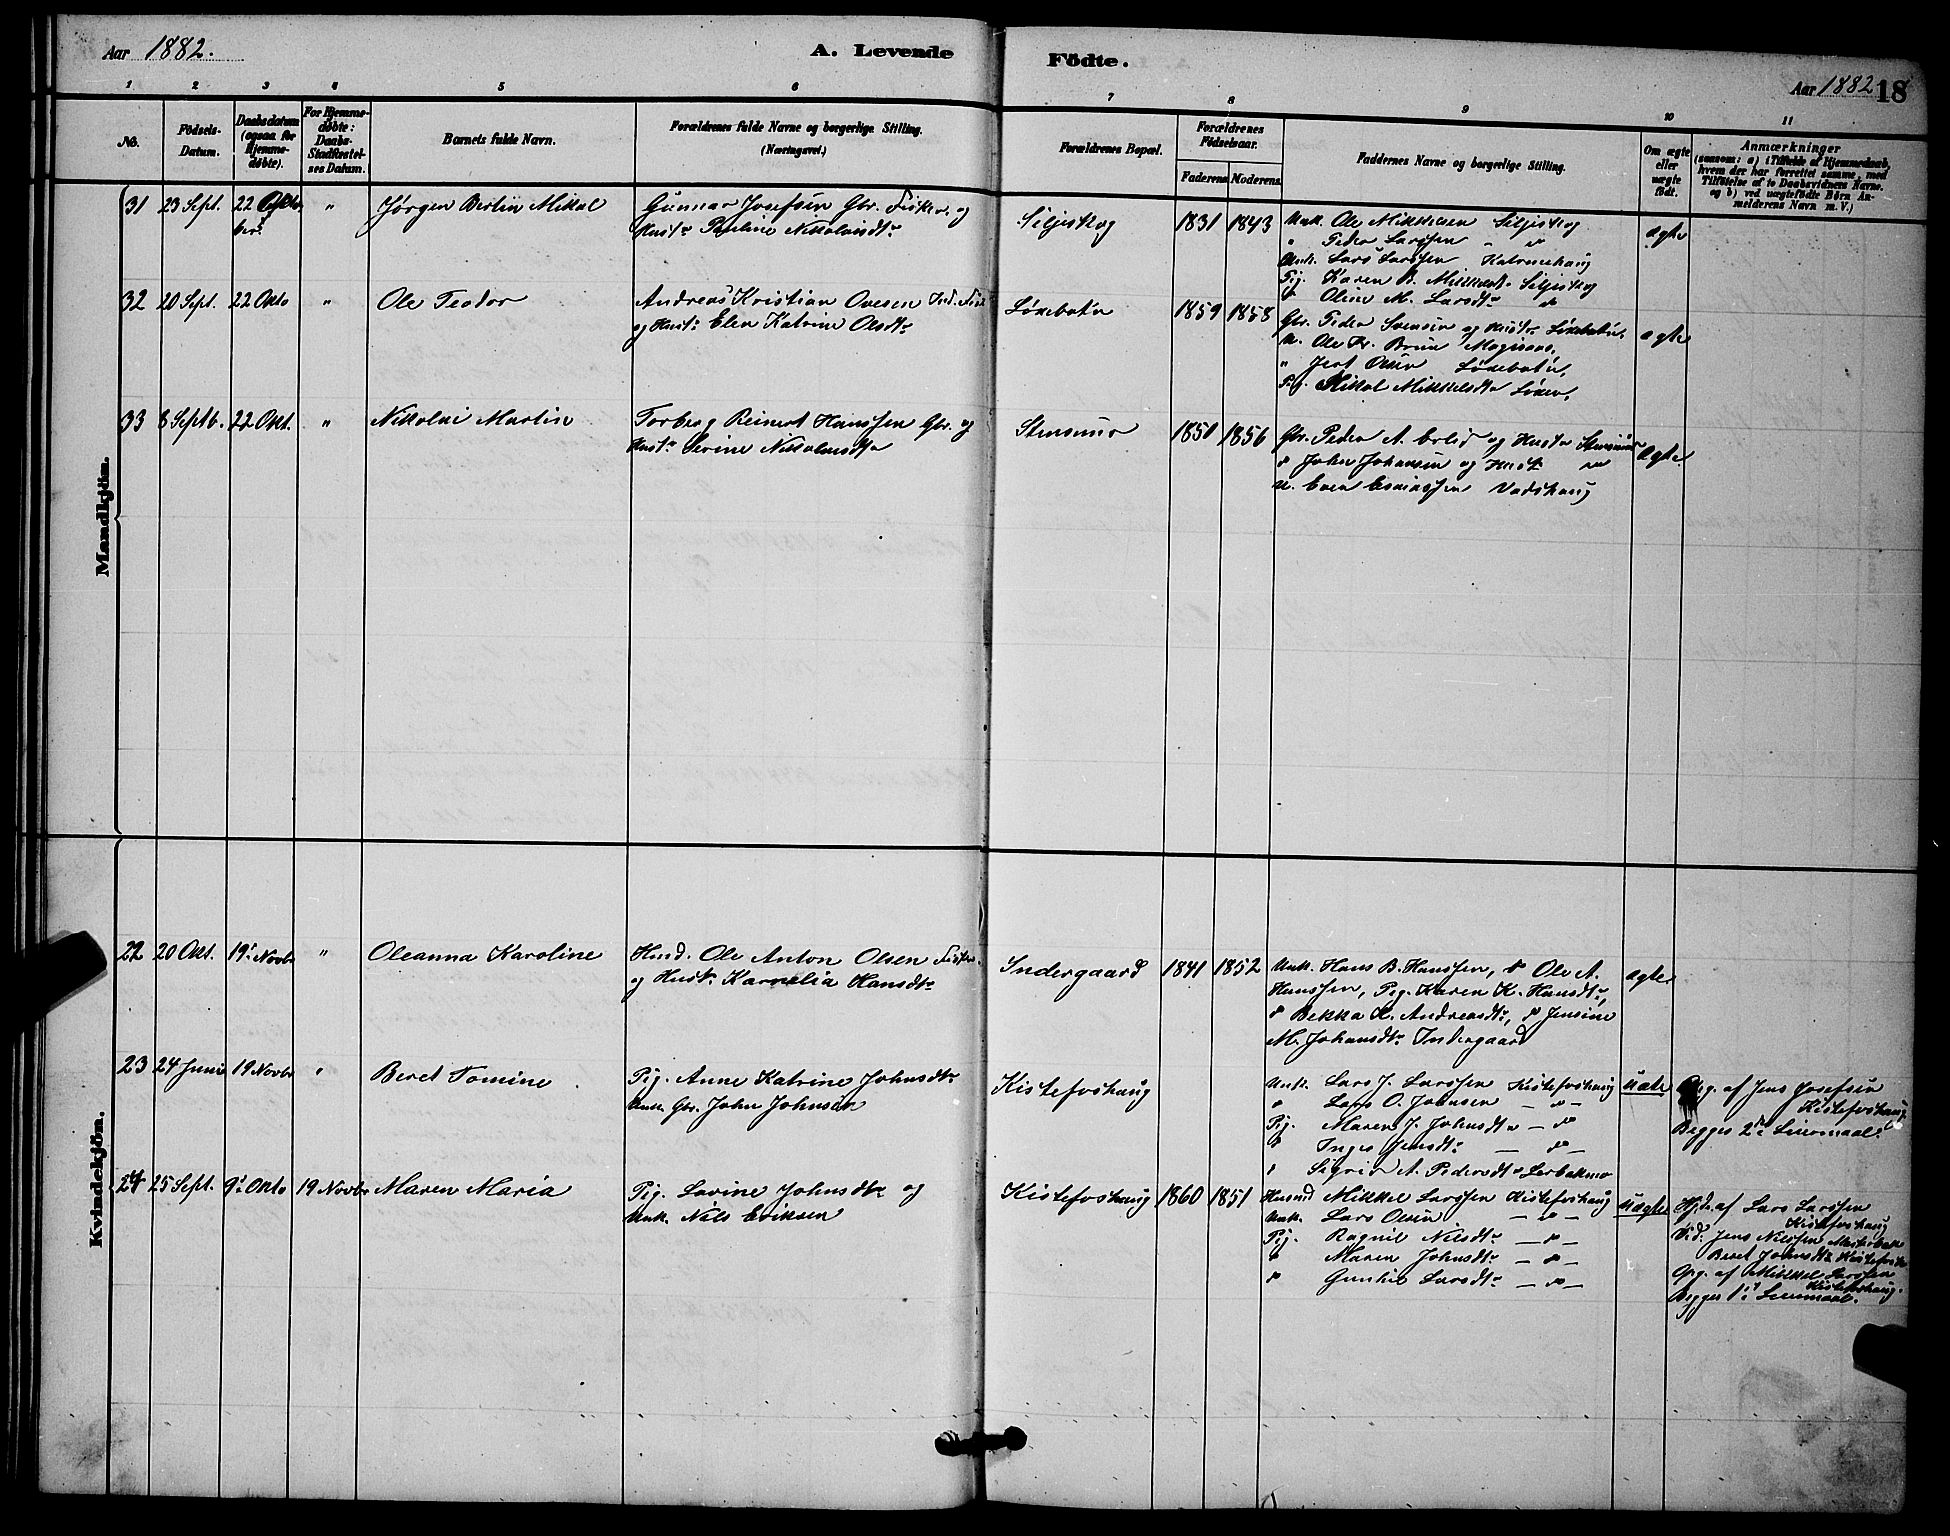 Aar 1882.
A. Levende Födte.
Aar 1882 18
1 2 3 4 5 6 7 8 9 10 11
No.
Födsels-Datum.
Daabsdatum (ogsaa for Hjemmedøbte).
For Hjemmedøbte: Daabs-Stadfæstelses Datum.
Barnets fulde Navn.
Forældrenes fulde Navne og borgerlige Stilling. (Næringsvei.)
Forældrenes Bopæl.
Forældrenes Födselsaar.
Faderens Moderens.
Faddernes Navne og borgerlige Stilling.
Om ægte eller uægte födt.
Anmærkninger
(saasom: a) i Tilfælde af Hjemmedaab, hvem der har forrettet samme, med Tilföielse af to Daabsvidners Navne, og b) ved uægtefödte Börn Anmelderens Navn m. V.)
Mandkjön.
31 23 Sept. 22 Oktober " Jørgen Berlin Mikal
Gunnar Josefsen Gbr. Fisker og
Hustr Pauline Nikolaisdtr
Siljiskog 1831 1843
Unk. Ole Mikkelsen Siljiskog
" Peder Larssen " "
Unk. Lars Larssen Katrinehaug
Pig. Karen B. Mikkelsdt. Siljiskog
" Oline M. Larsdtr "
ægte
32 20 Sept. 22 Okto " Ole Teodor
Andreas Kristian Ovesen Ind. Fisk
og Hustr Elen Katrine Olsdtr
Löxebotn 1859 1858
Gbr. Peder Svensen og Hustr Löxebotn.
U. Ole Fr. Bruun
" Jert Olsen Löxebotn,
Pig. Mikal Mikkelsdtr
ægte
33 8 Septb. 22 Okt. " Nikolai Martin
Torberg Reinert Hanssen Gbr. og
Hustr Serine Nikolaisdtr
Stensmo 1851 1856
Gbr. Peder A. og Hustr Stensmo
" John Johansen og Hust "
U. Even Esaiassen Vadshaug
ægte
Kvindekjön.
22 20 Okt. 19 Novbr " Oleanna Karoline
Husd. Ole Anton Olsen Fisker
og Hustr Karnelia Hansdtr
Indergaard 1841 1852
Unk. Hans B. Hanssen, " Ole A.
Hanssen, Pig. Karen K. Hansdtr,
" Bekka K. Andreasdtr, " Jensine
M. Johansdtr Indergaard
ægte
23 24 Juni 19 Novbr " Beret Tomine
Pig. Anne Katrine Johnsdtr
Unk. Gbr. John Johnsen
Kistefoshaug
Unk. Lars J. Larssen Kistefoshaug
" Lars O. Johnsen — " —
Pig. Maren J. Johnsdtr — "
" Inger Jensdtr — " —
" Sigrid A. Pedersdtr
uæte
Opg. af Jens Josefsen
Kistefoshaug
Begges 2det Leiermaal.
24 25 Sept. 9 Okto 19 Novbr Maren Maria
Pig. Lovine Johnsdtr og
Unk. Nils Eriksen
Kistefoshaug 1860 1851
Husmd Mikkel Larssen Kistefoshaug
Unk. Lars Olsen — " —
Pig. Ragnil Nilsdtr — " —
" Maren Johnsdtr — " —
" Gunhil Larsdtr — " —
uægte
Hjdp. af Lars Larssen
Kistefoshaug
Vid. Jens Nilssen
Beret Johnsdtr Kistefos
Opg. af Mikkel Larssen
Kistefoshaug.
Begges 1ste Leiermaal.